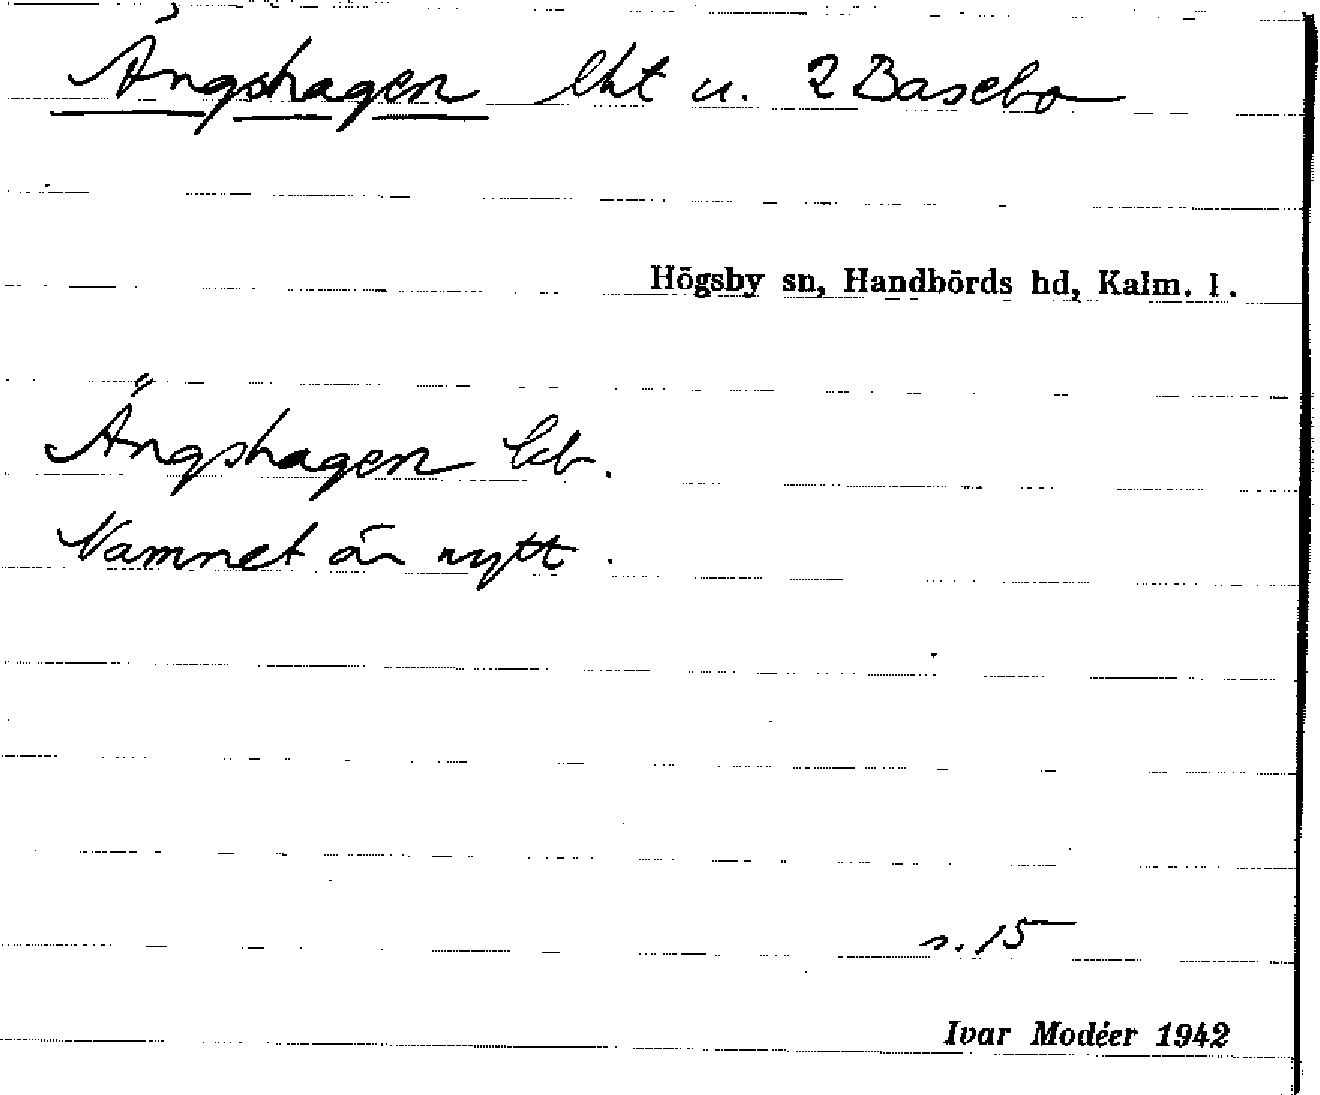 Ängshagen lht u. 2 Basebo
Högsby sn, Handbörds hd, Kalm. l.
Ängshagen
Namnet är nytt.
s. 15
Ivar Modéer 1942